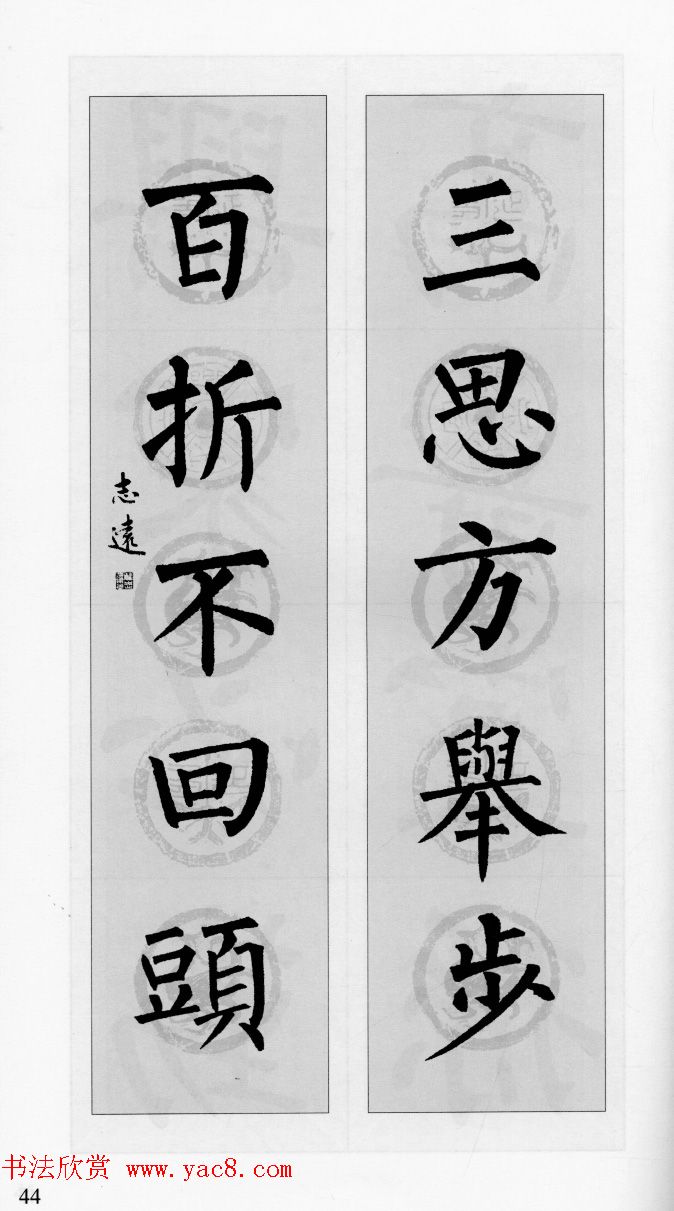 三思方舉步
百折不回頭
志遠
书法欣赏 www.yac8.com
44